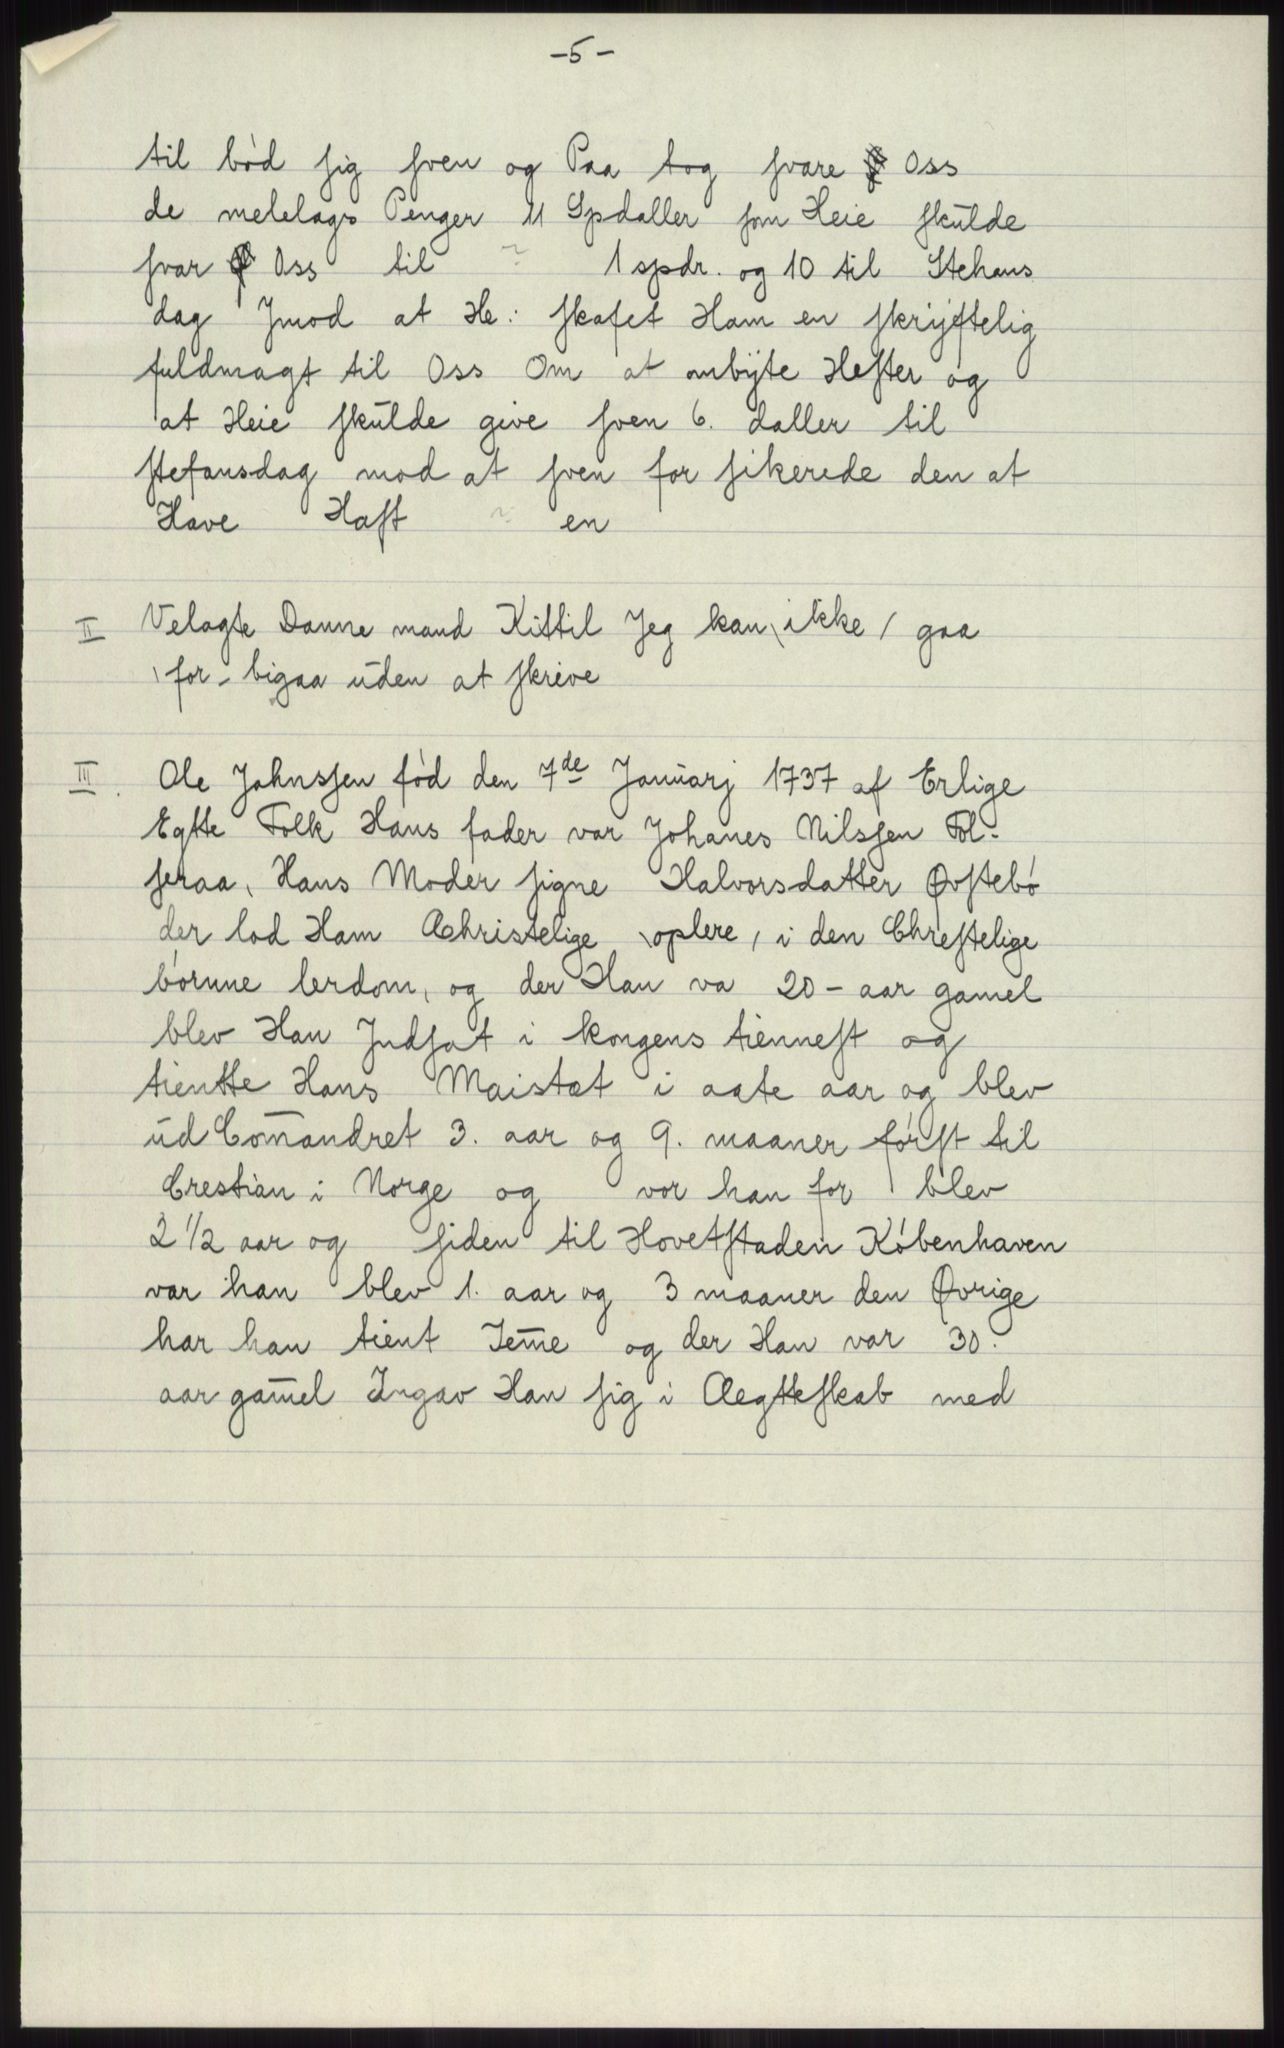 -5-
til bød sig sven og Paa tog svare Oss
de melelags Penger 11 Spdaller som Heie skulde
svar Oss til ~ 1 spdr. og 10 til Stehans
dag Jmod at He: skafet Ham en skryftelig
fuldmagt til Oss Om at ombyte Hester og
at Heie skulde give sven 6. daller til
stefansdag mod at sven for sikerede den at
Have Haft ~ en
II Velagte Danne mand Kittil Jeg kan \ ikke / gaa
\ for - bigaa uden at skrive
III. Ole Johnssen fød den 7de Januarj 1737 af Erlige
Egte Folk Hans fader var Johanes Nilssen Fol-
seraa, Hans Moder signe Halvorsdatter Øvstebø
der lod Ham Christelige \ oplere / i den Chrestelige
børnne lerdom, og der Han va 20 - aar gamel
blev Han Indsat i kongens tiennest og
tientte Hans Maistæt i aate aar og blev
ud Com̅andret 3. aar og 9. maaner først til
Crestian i Norge og vor han for blev
2 1/2 aar og siden til Hovetstaden Københaven
var han blev 1. aar og 3 maaner den Øvrige
har han tient Iem̅e og der Han var 30.
aar gam̅el Ingav Han sig i Ægteskab med